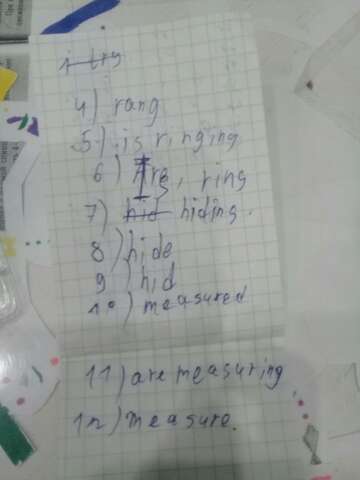 4) rang
5) is ringing
6) Is, ring
7) hid hiding.
8) hide
9) hid
10) measured
11) are measuring
12) measure.